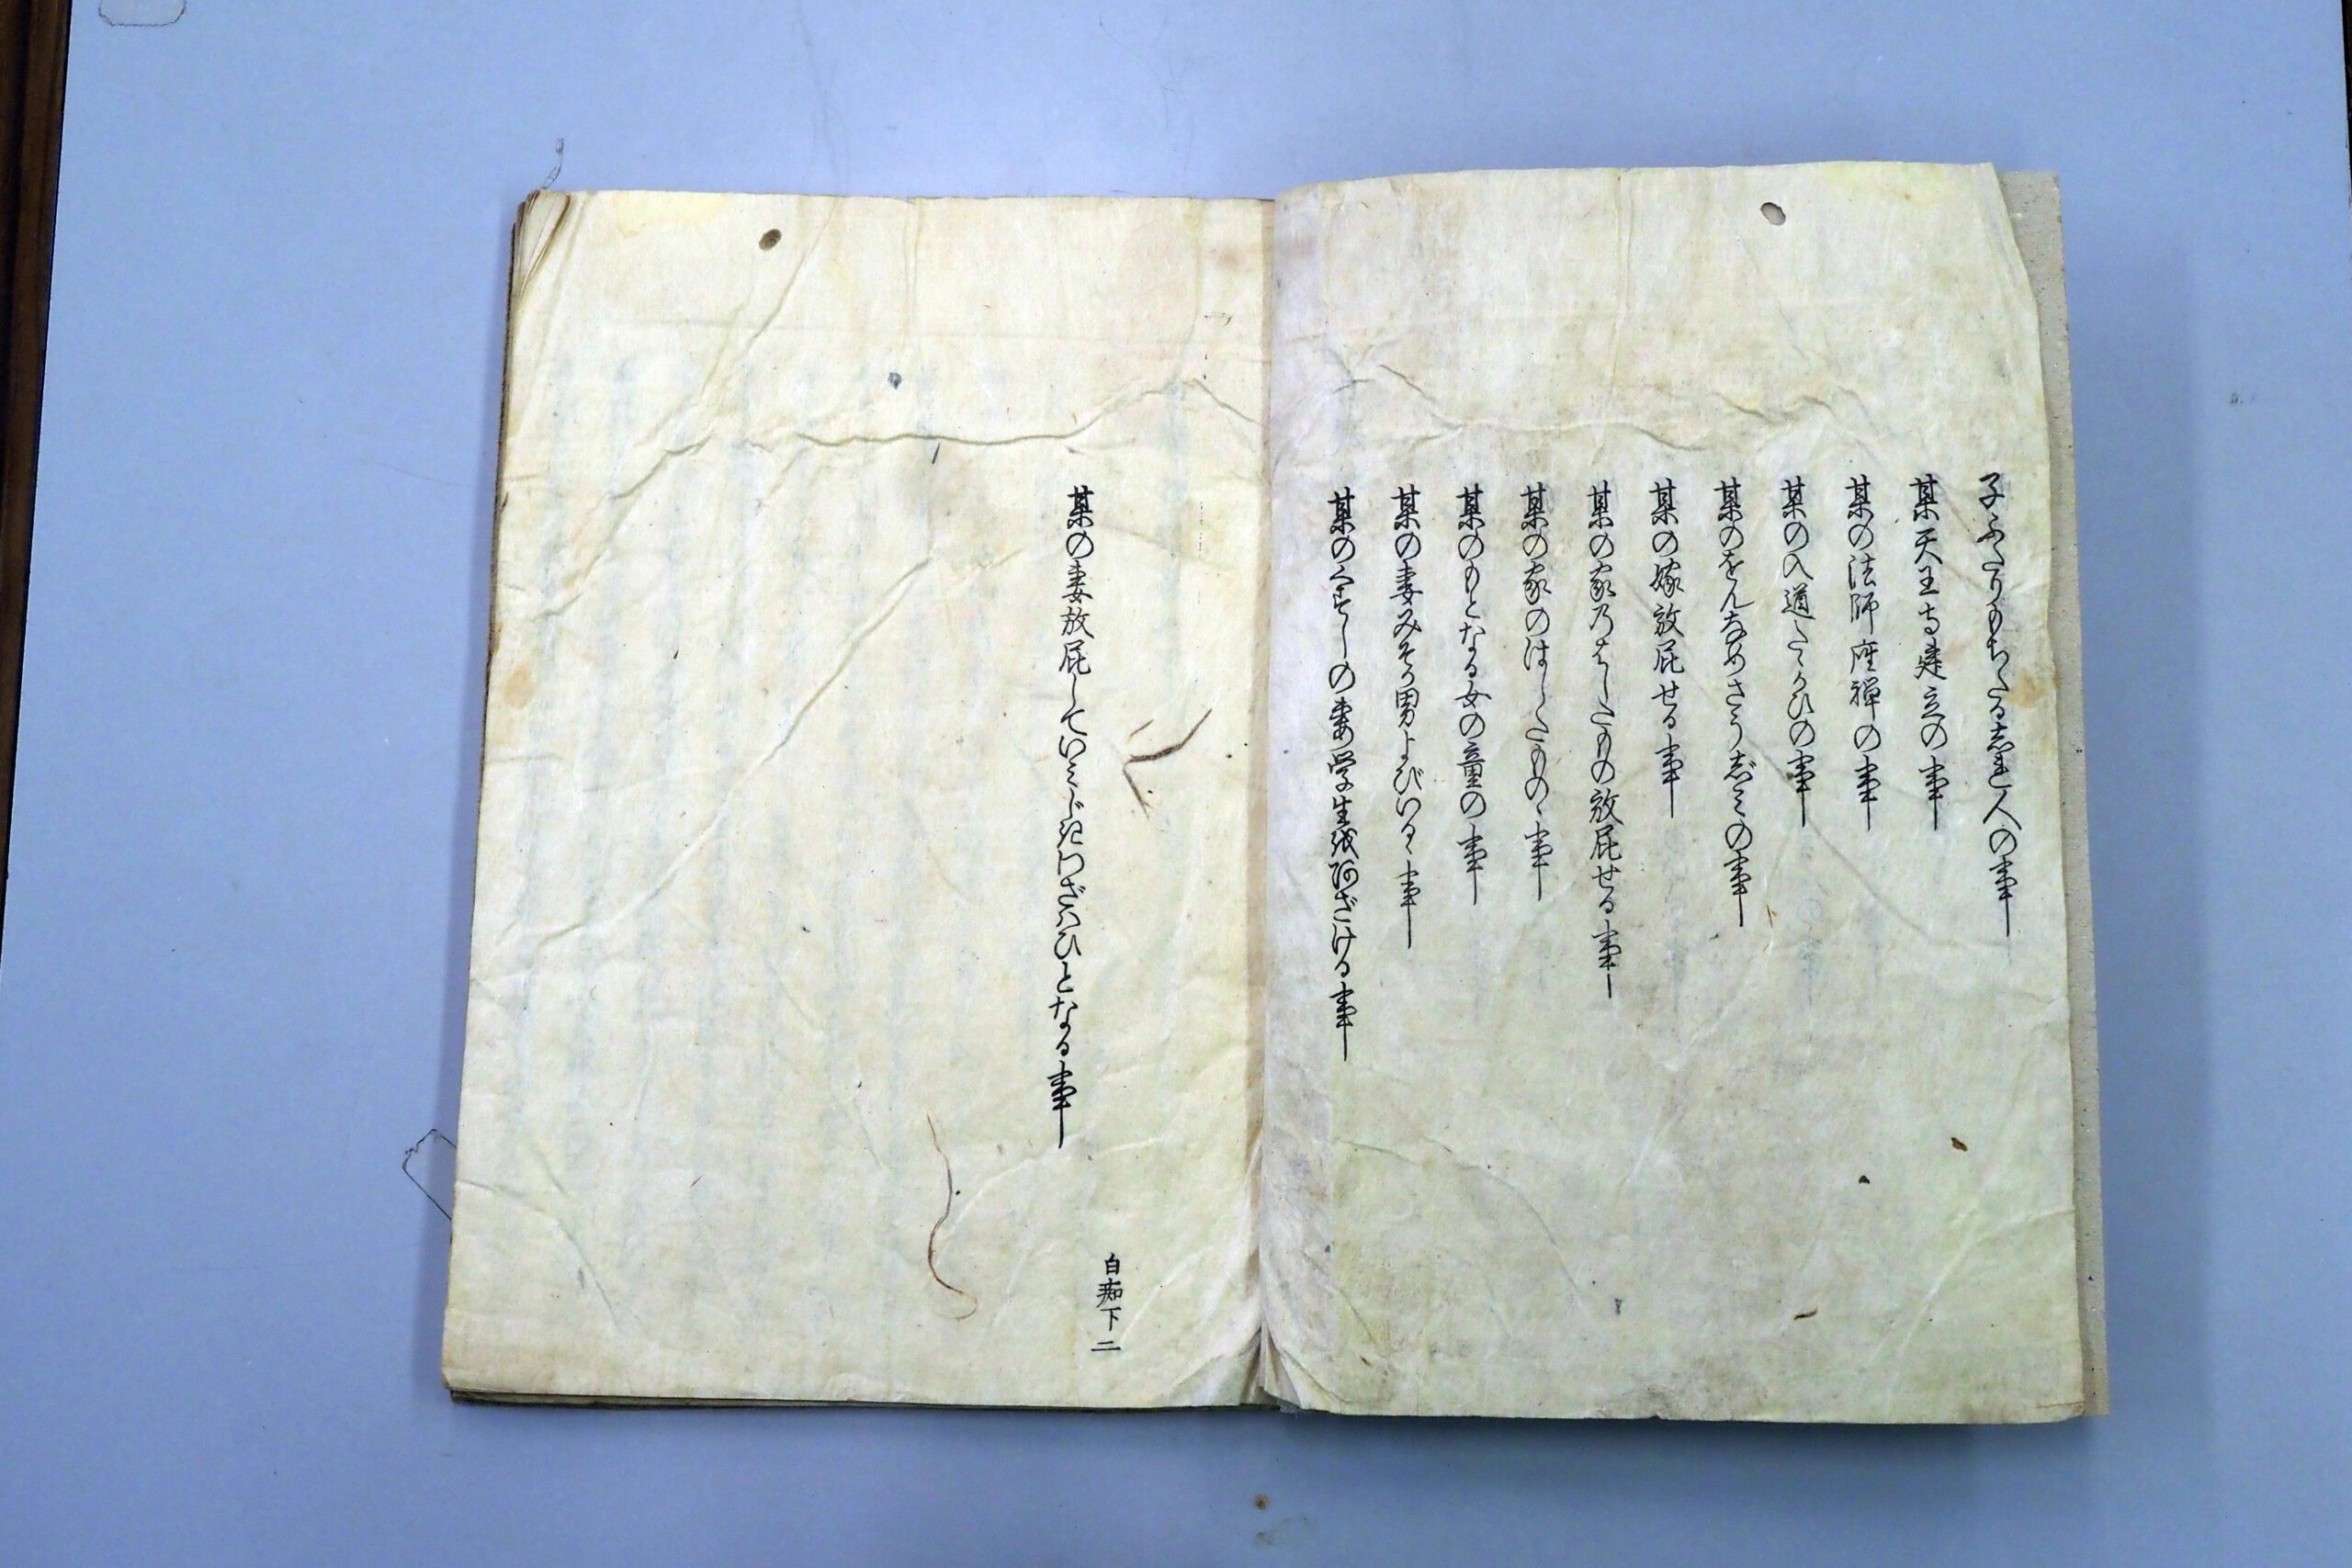 子ふたりもちたる志れ人の事
某天王寺建立の事
某の法師座禅の事
某の入道たゝかひの事
某のをんなめさうじみの事
某の嫁放屁せる事
某の家乃はしたもの放屁せる事
某の家のはしたもの事
某のもとなる女の童の事
某の妻みそか男よびいるゝ事
某のくすしの妻学生をあざける事
某の妻放屁していみじきわざはひとなる事
白痴下二